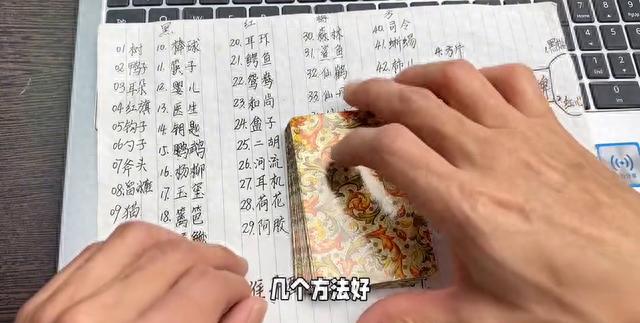 黑
01 树
02 鸭子
03 耳朵
04 红旗
05 钩子
06 勺子
07 斧头
08
09 猫
10. 棒球
11. 筷子
12. 婴儿
13. 医生
14. 钥匙
15. 鹦鹉
16. 杨柳
17. 玉玺
18. 篱笆
红
20. 耳环
21. 鳄鱼
22. 鸳鸯
23. 和尚
24. 盒子
25. 二胡
26. 河流
27. 耳机
28. 荷花
29. 阿胶
梅
30. 森林
31. 鲨鱼
32. 仙鹤
33. 仙
方
40. 司令
41. 蜥蜴
42. 柿儿
4. 方片
几个方法好